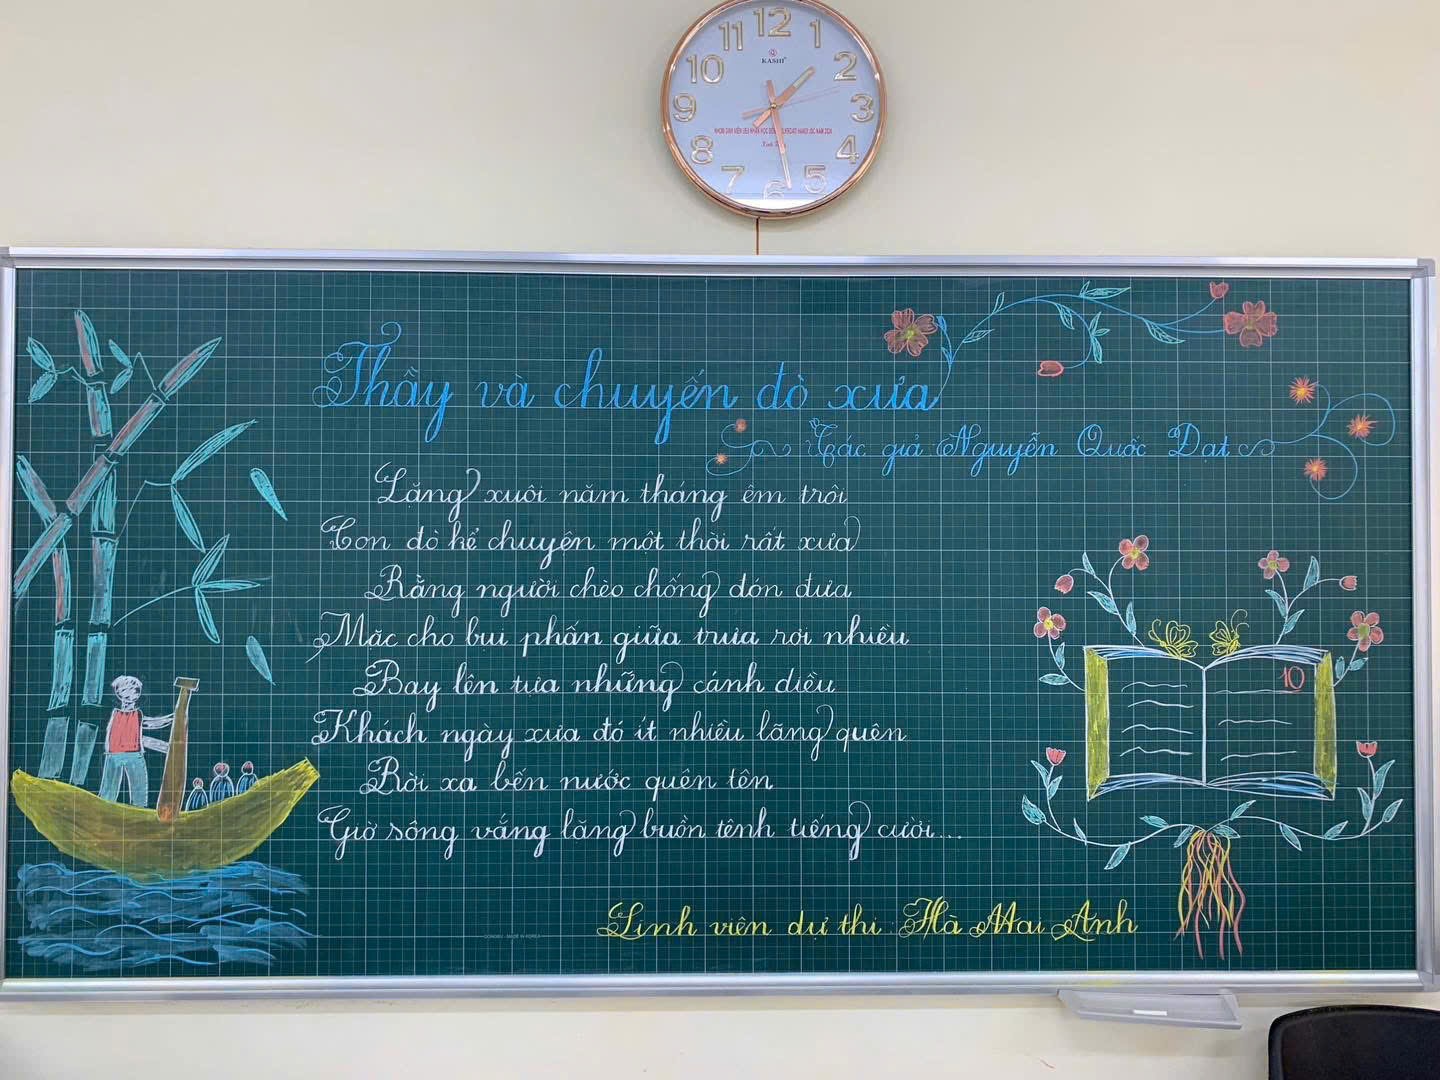 12
1
2
3
4
5
6
7
8
9
10
11
KASHI
Thầy và chuyến đò xưa
Tác giả Nguyễn Quốc Đạt
Lặng xuôi năm tháng êm trôi
Con đò kể chuyện một thời rất xưa
Rằng người chèo chống đón đưa
Mặc cho bụi phấn giữa trưa rơi nhiều
Bay lên tựa những cánh diều
Khách ngày xưa đó ít nhiều lãng quên
Rời xa bến nước quên tên
Giờ sông vắng lặng buồn tênh tiếng cười...
10
Sinh viên dự thi: Hà Mai Anh
MADE IN KOREA